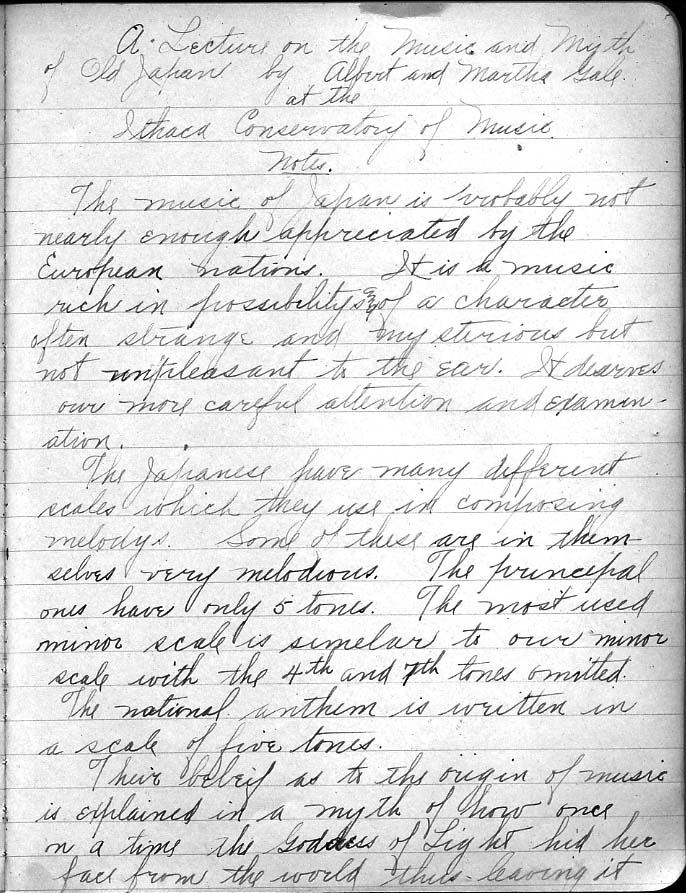 A Lecture on the Music and Myth
of Old Japan by Albert and Martha Gale.
at the
Ithaca Conservatory of Music.
Notes.
The music of Japan is probably not
nearly enough appreciated by the
European nations. It is a music
rich in possibilitys of a character
often strange and mysterious but
not unpleasant to the ear. It desrves
our more careful attention and examin-
ation.
The Japanese have many different
scales which they use in composing
melodys. Some of these are in them-
selves very melodious. The principal
ones have only 5 tones. The most used
minor scale is simelar to our minor
scale with the 4th and 7th tones omitted.
The national anthem is written in
a scale of five tones.
Their beleif as to the origin of music
is explained in a myth of how once
on a time the Goddess of Light hid her
face from the world thus leaving it